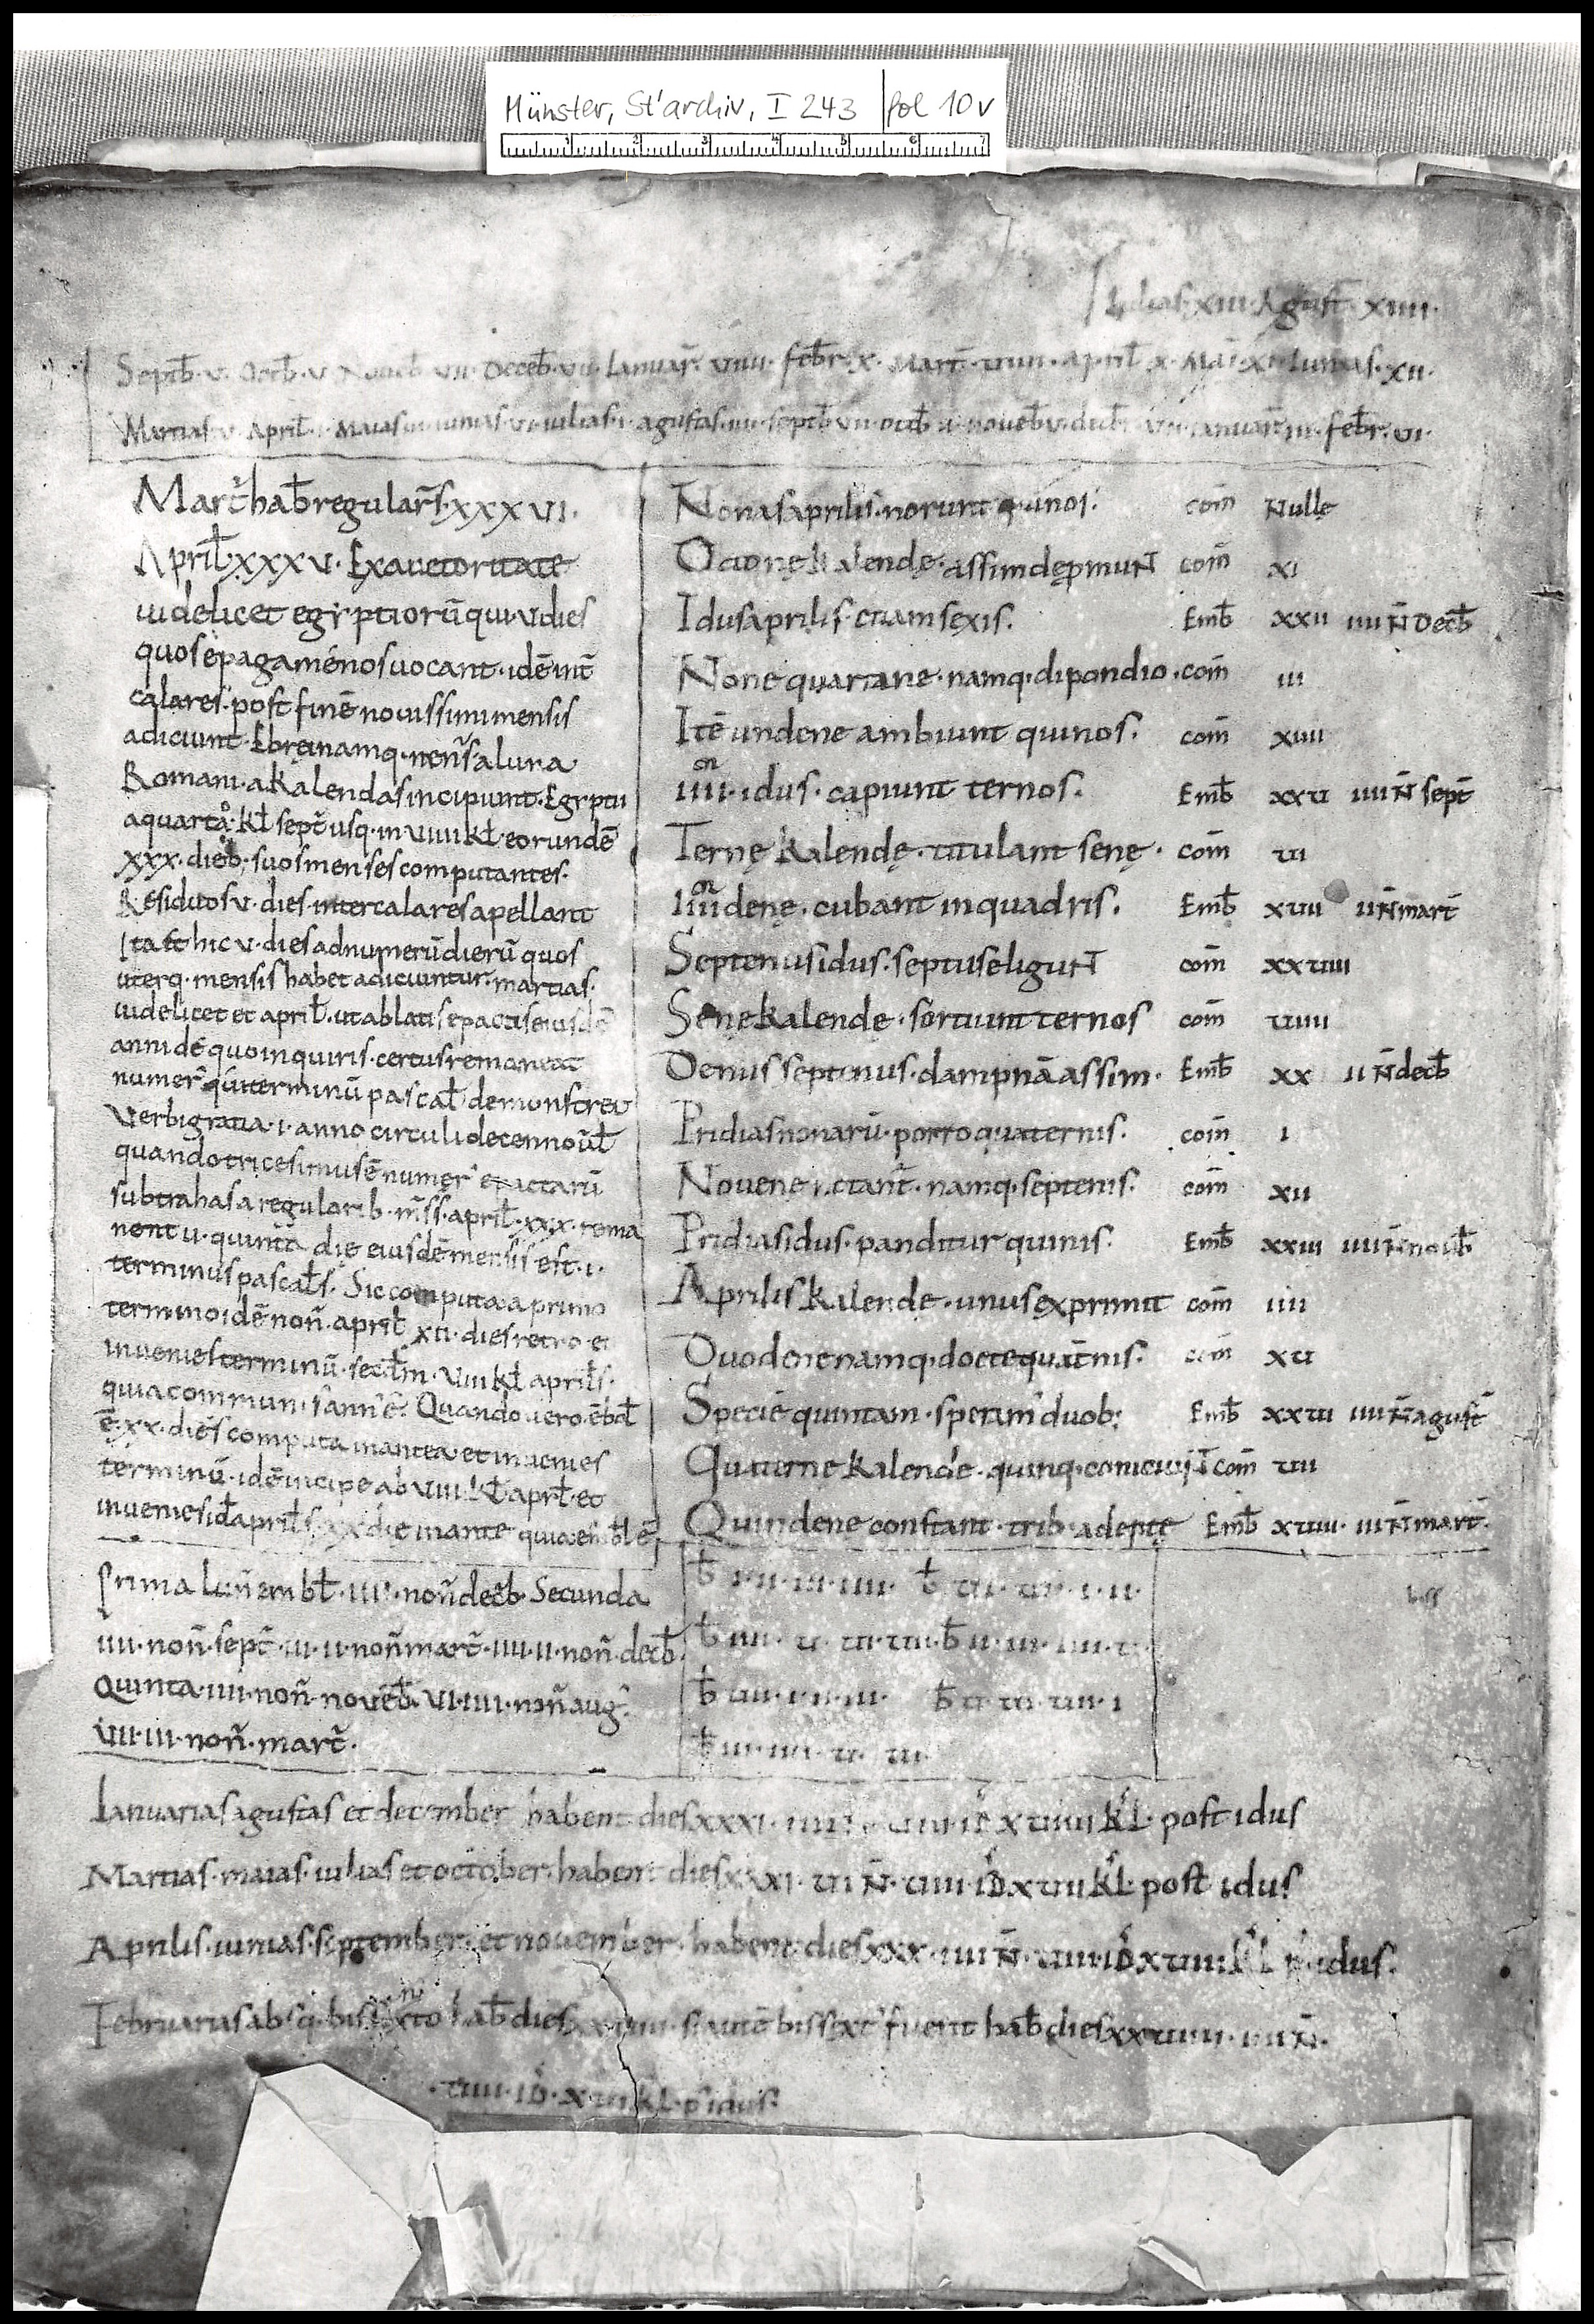 Münster, St'archiv, I 243 fol 10v
1 2 3 4 5 6 7
Iulias·xiii·Agust̄·xiiii·
Septēb·v·Octb̄·v·Nouēb·vii·Decēb·vii·Ianuar̄·viiii·febr̄·x·Mart̄·viiii·april̄·x·Mai·xi·Iunias·xii·
Martias·v·April̄·i·Maias·iii·iunias·vi·iulias·i·agustas·iiii·septb̄·vii·octb̄·ii·nouēb·v·decb̄·vii·ianuar̄·iii·febr̄·vi·
Mart̄ hab̄ regular̄s·xxxvi·
April̄·xxxv·Ex auctoritate
uidelicet egiptiorū qui·v·dies
quos epagaménos uocant·idē int̄
calares·post finē nouissimi mensis
adiciunt·Ebrei namq·mens̄ a luna
Romani·a kalendas incipiunt·Egiptii
a quarta·kł sept̄ usq·in viiii kł·eorundē
xxx·dieb;·suos menses computantes·
Residuos·v·dies·intercalares apellant
Ita et hic v·dies ad numerū dierū quos
uterq·mensis habet adiciuntur·martias·
uidelicet et april̄·ut ablatis epactis eiusdē
anni dé quo inquiris·certus remaneat
numer᷒ qui terminū pascal̄ demonstret
Verbi gratia·i·anno circuli decennoūl
quando tricesimus ē numer᷒ epactarū
subtrahas a regularib·m̄ss·april̄·xxx·rema
nent v·quinta die eiusdē mensis est·i·
terminus pascal̄s·Sic computa a primo
termino idē noñ·april̄ xii·dies retro et
inuenies terminū·secd̄m·viii kł april̄s·
quia commun·s ann᷒ ē·Quando uero·ēbol̄
ē·xx·dies computa in antea·et inuenies
terminū·idē incipe ab viii·kł apr̄l·et
inuenies id̄ april̄s·xx·die in ante quia emb̄l ē
Prima lun̄ embl̄·iiii·noñ decb̄·Secunda
iiii·noñ·sept̄·iii·ii·noñ mart̄·iiii·ii·noñ·decb̄·
Quinta·iiii·noñ·nouēb·vi·iiii·noñ aug᷒·
vii·iii·noñ·mart̄·
Nonas aprilis·norunt quinos· com̄ Nulle
Octone kalende·assim depromunt com̄ xi
Idus aprilis·etiam sexis· Emb̄ xxii iiii N̄ Decb̄
None quartane·namq·dipondio· com̄ iii
Itē undene ambiunt quinos· com̄ xiiii
iiii·idus·capiunt ternos· Emb̄ xxv iiii N̄ sept̄
Terne kalende·titulant sene· com̄ vi
iiii dene·cubant in quadris· Emb̄ xvii ii N̄ mart̄
Septenus idus·septus eligunt com̄ xxviii
Sene kalende·sortiunt ternos com̄ viiii
Denus septinus·dampnā assim· Emb̄ xx ii N̄ decb̄
Pridias nonarū·porro quaternis· com̄ i
Nouene notant̄·namq·septenis· com̄ xii
Pridias idus·panditur quinis· Emb̄ xxiii iiii N̄ nouēb
Aprilis kalende·unus exprimit com̄ iiii
Duodene namq·docte quat̄nis· com̄ xv
Specie quintam·speram᷒ duob; Emb̄ xxvi iiii N̄ agust̄
Quaterne kalende·quinq·coniciunt com̄ vii
Quindene constant·trib·adepte Emb̄ xviii·iii N̄ mart̄·
b̄ i·ii·iii·iiii· b̄ vi·vii·i·ii·
b̄ iiii·v·vi·vii· b̄ ii·iii·iiii·v·
b̄ vii·i·ii·iii· b̄ v·vi·vii·i
b̄ iii·iiii·v·vi·
Ianuarias agustas et december habent dies xxxi·iiii N̄·viii·ID̄ xviiii KL·post idus
Martias·maias·iulias et october·habent dies xxxi·vi N̄·viii·ID̄ xvii KL·post idus
Aprilis·iunias·september·et nouember·habent dies xxx·iiii N̄·viii·ID̄ xviii KL p᷒·idus·
Februarias absq·bissexto hab̄ dies xxviii·si autē bissext᷒ fuerit hab̄ dies xxviiii·iiii N̄·
·viii·ID̄·xvi KL·p᷒ idus·